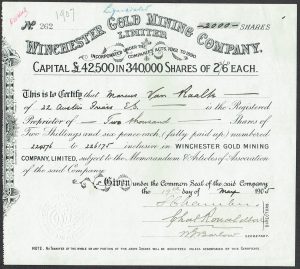 1907
No 262
2000 SHARES
WINCHESTER GOLD MINING COMPANY,
LIMITED
INCORPORATED UNDER THE COMPANIES ACTS 1862 TO 1890
CAPITAL £42,500 IN 340,000 SHARES OF 2/6 EACH.
This is to Certify that Marcus Van Raalte
of 22 Austin Friars E.C. is the Registered
Proprietor of Two thousand Shares of
Two Shillings and six pence each, (fully paid up) numbered
to 226175 inclusive in WINCHESTER GOLD MINING
COMPANY, LIMITED, subject to the Memorandum & Articles of Association
of the said Company.
Given under the Common Seal of the said Company
day of May 1905
DIRECTORS
SECRETARY
NOTE. NO TRANSFER OF THE WHOLE OR ANY PORTION OF THE ABOVE SHARES WILL BE REGISTERED UNLESS ACCOMPANIED BY THIS CERTIFICATE.